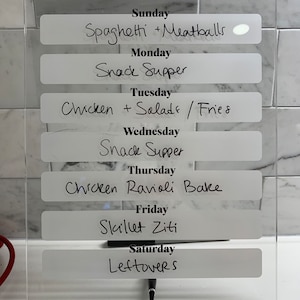 Sunday
Spaghetti + Meatballs
Monday
Snack Supper
Tuesday
Chicken + Salads / Fries
Wednesday
Snack Supper
Thursday
Chicken Ravioli Bake
Friday
Skillet Ziti
Saturday
Leftovers